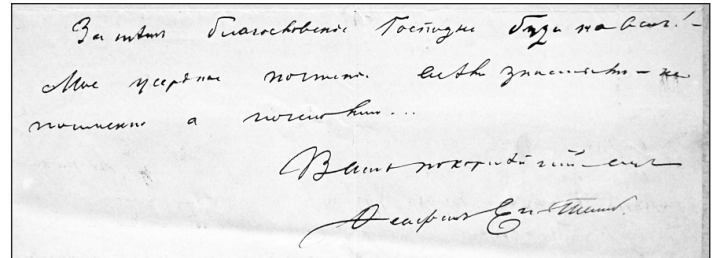 За тѣмъ благословеніе Господне буди на васъ! –
Мое усердное почтеніе всѣмъ – не
поименно а
Вашъ покорнѣйшій
Ѳеофанъ Еп. Тамб.